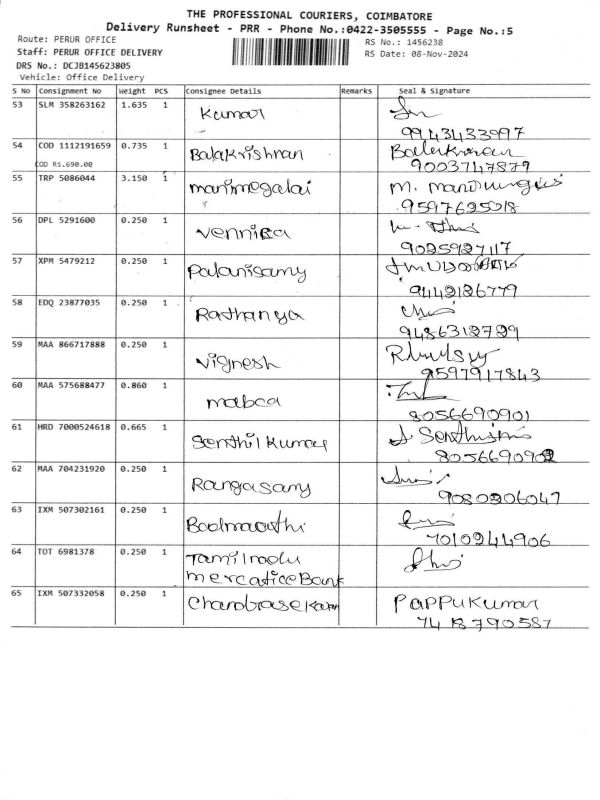 THE PROFESSIONAL COURIERS, COIMBATORE
Delivery Runsheet - PRR - Phone No.:0422-3505555 - Page No.:5
Route: PERUR OFFICE
RS No.: 1456238
Staff: PERUR OFFICE DELIVERY
RS Date: 08-Nov-2024
DRS No.: DCJB145623805
Vehicle: Office Delivery
S No Consignment No Weight PCS Consignee Details Remarks Seal & Signature
53 SLM 358263162 1.635 1 Kumar
9943433997
54 COD 1112191659 0.735 1 Balakrishnan
COD Rs.690.00 9003747879
55 TRP 5086044 3.150 1 manimegalai
9597625018
56 DPL 5291600 0.250 1 Vennila
9025927117
57 XPM 5479212 0.250 1 Palanisamy
9442126779
58 EDQ 23877035 0.250 1 Rathanya
9486312729
59 MAA 866717888 0.250 1 Vignesh
9597917843
60 MAA 575688477 0.860 1
8056690901
61 HRD 7000524618 0.665 1 Senthil Kumar
8056690902
62 MAA 704231920 0.250 1 Rangasamy
9080206047
63 IXM 507302161 0.250 1
7010244906
64 TOT 6981378 0.250 1 Tamilnadu
mercatice Bank
65 IXM 507332058 0.250 1 Chandrasekaran PAPPU Kumar
7418790587